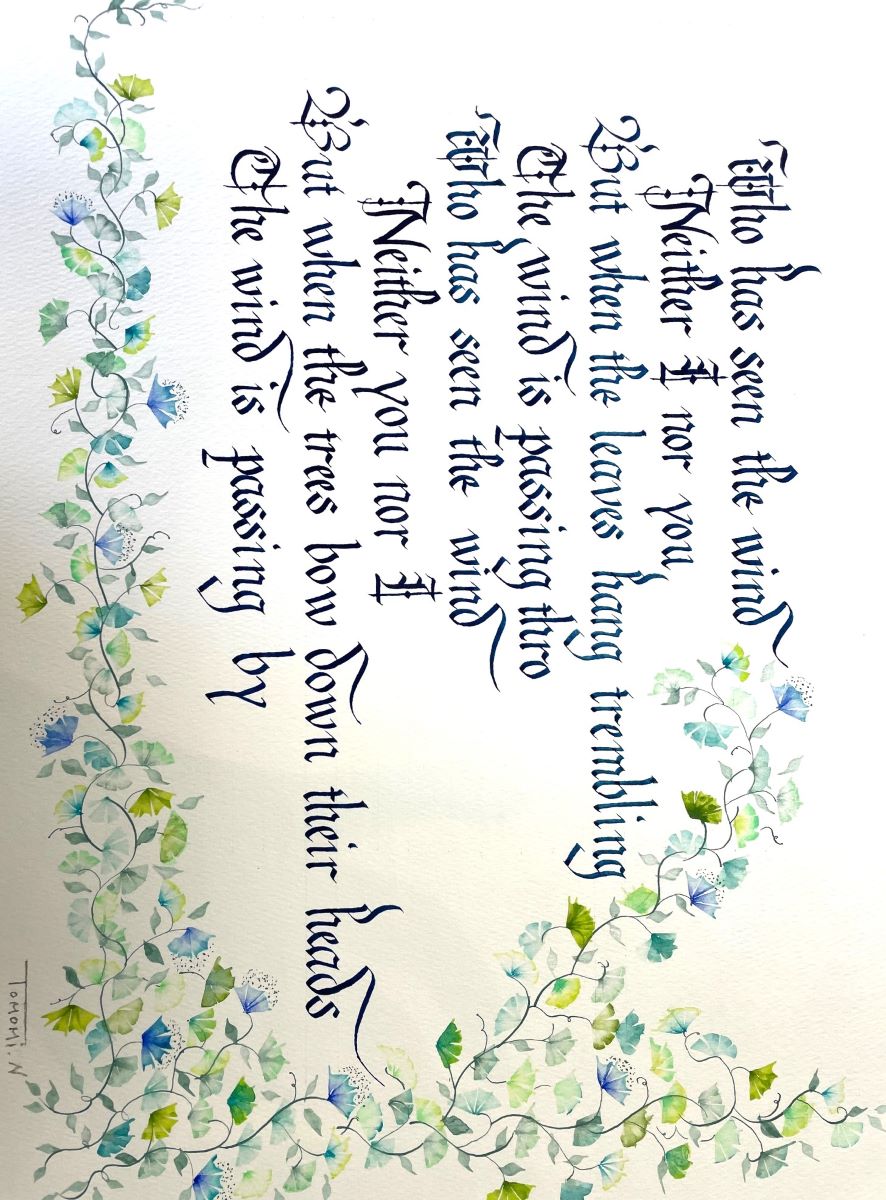 Who has seen the wind
Neither I nor you
But when the leaves hang trembling
The wind is passing thro
Who has seen the wind
Neither you nor I
But when the trees bow down their heads
The wind is passing by
Tomomi. N